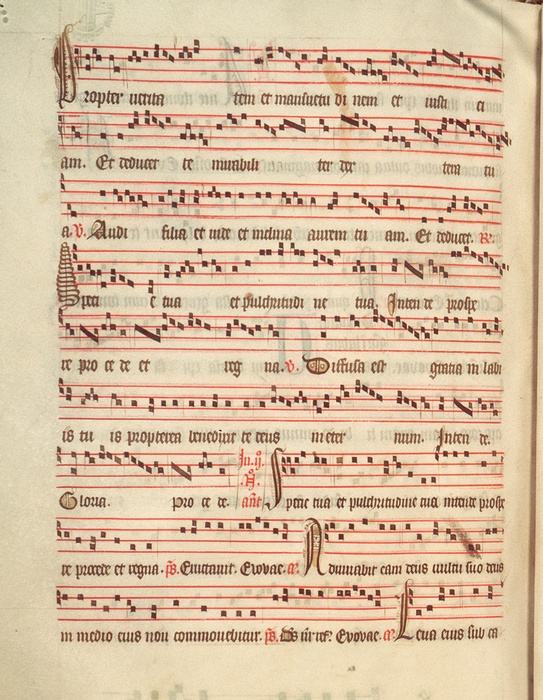 Propter uerita tem et mansuetu di nem et iusti ci
am. Et deducet te mirabili ter dex tera tu
a. v. Audi filia et uide et inclina aurem tu am. Et deducet. R.
Speci e tua et pulchritudi ne tua. Inten de prospe
re pro ce de et reg na. v. Diffusa est gratia in labi
is tu is propterea benedixit te deus in eter num. Inten de.
Gloria. Pro ce de. In .ij. N. añe Specie tua et pulchritudine tua intende prospe
re procede et regna. ps. Eructauit. Evovae. a. Adiuuabit eam deus uultu suo deus
in medio eius non commouebitur. ps. Evovae. a. Leua eius sub ca